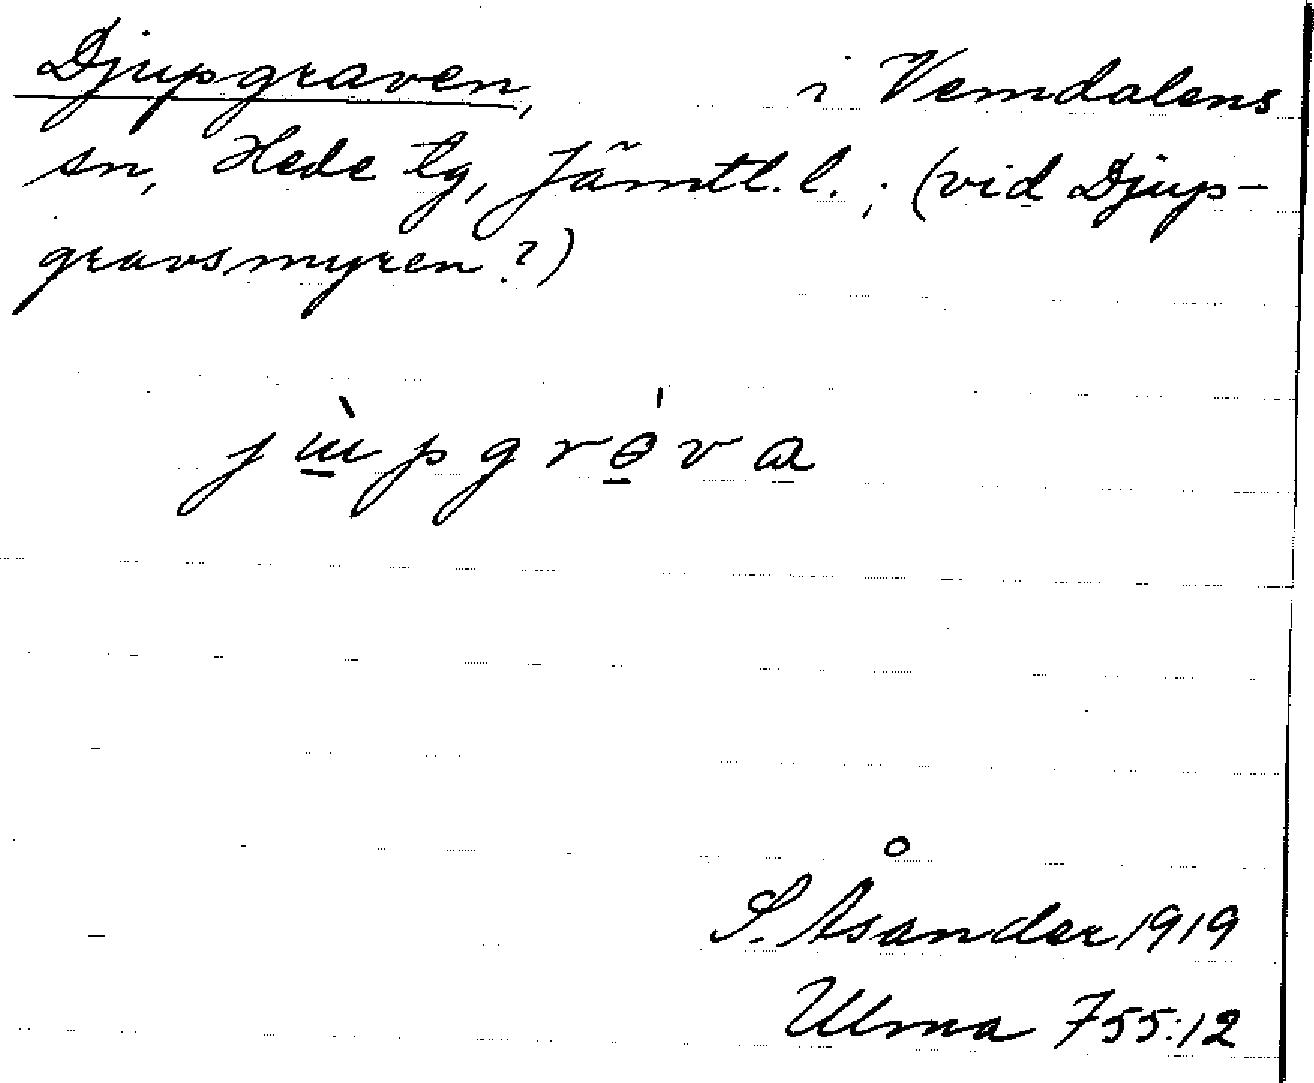 Djupgraven, i Vemdalens
sn, Hede tg, Jämtl. l.; (vid Djup-
gravsmyren?)
jɯ̲̀pgrɵ̲́va̲
S. Åsander 1919
Ulma 755:12